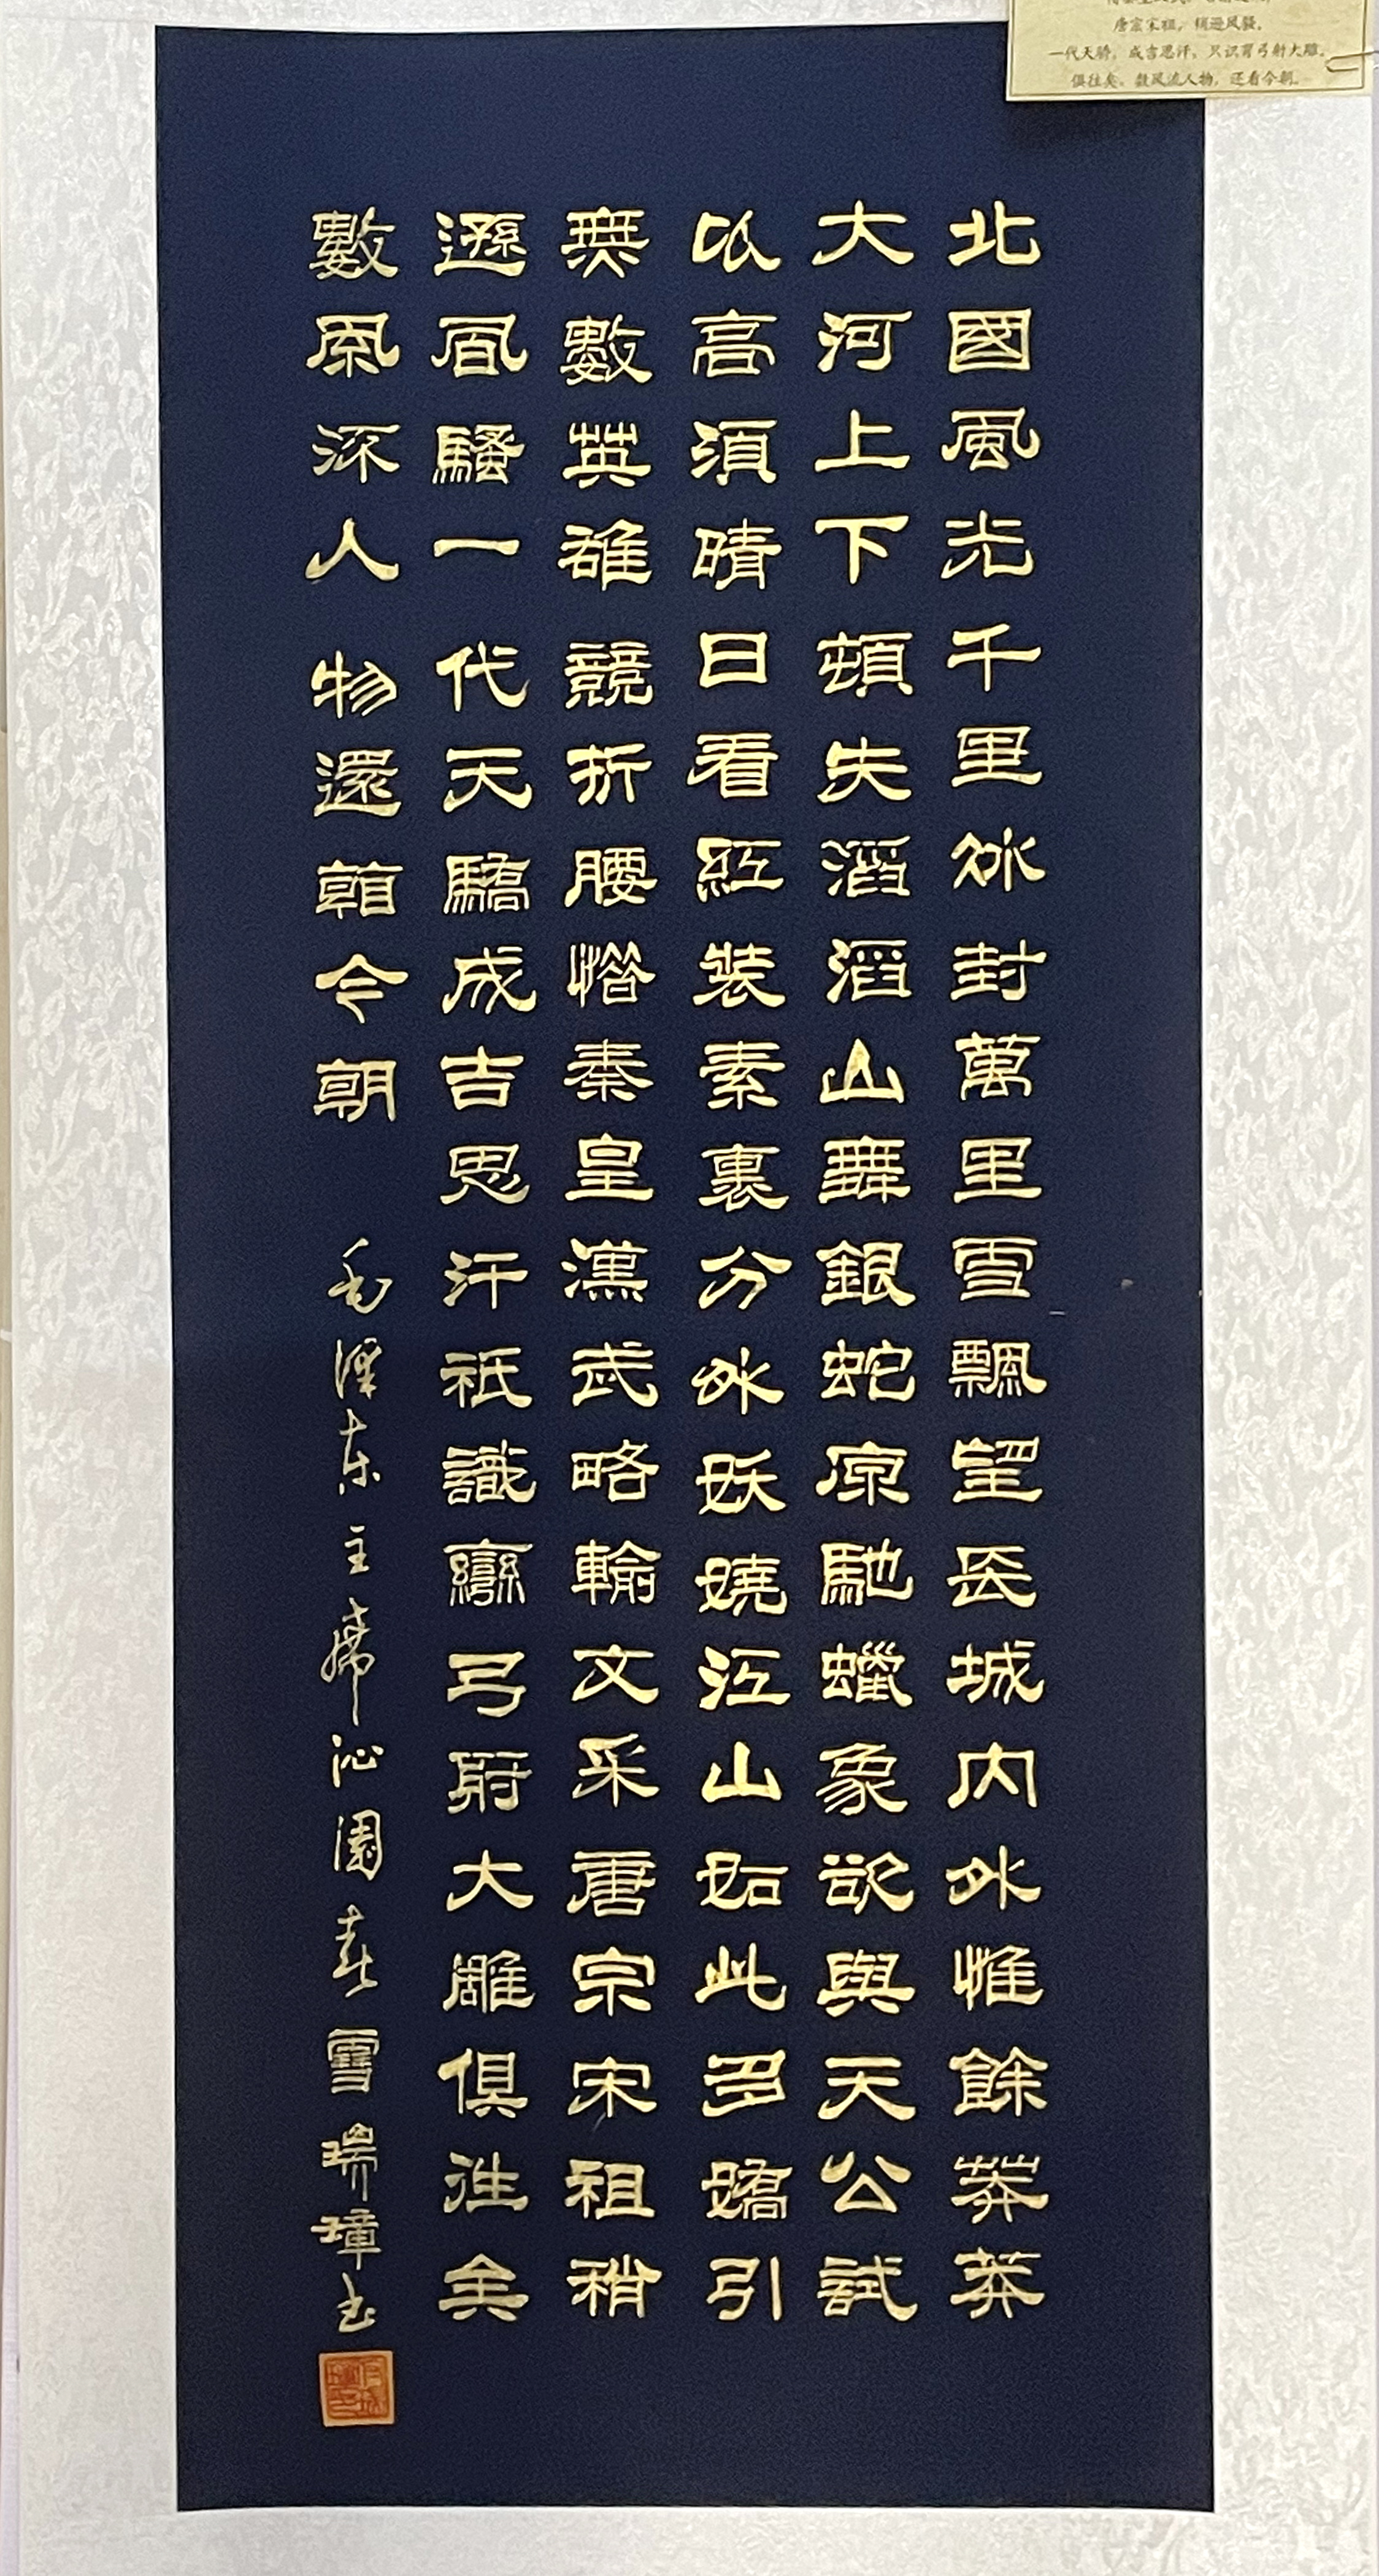 唐宗宋祖，稍逊风骚。
一代天骄，成吉思汗，只识弯弓射大雕。
俱往矣，数风流人物，还看今朝。
北國風光千里冰封萬里雪飄望長城内外惟餘莽莽
大河上下頓失滔滔山舞銀蛇原馳蠟象欲與天公試
以高須晴日看紅裝素裹分外妖嬈江山如此多嬌引
無數英雄競折腰惜秦皇漢武略輸文采唐宗宋祖稍
遜風騷一代天驕成吉思汗祇識彎弓射大雕俱往矣
數風流人物還看今朝 毛澤东主席沁園春雪瑞璋书